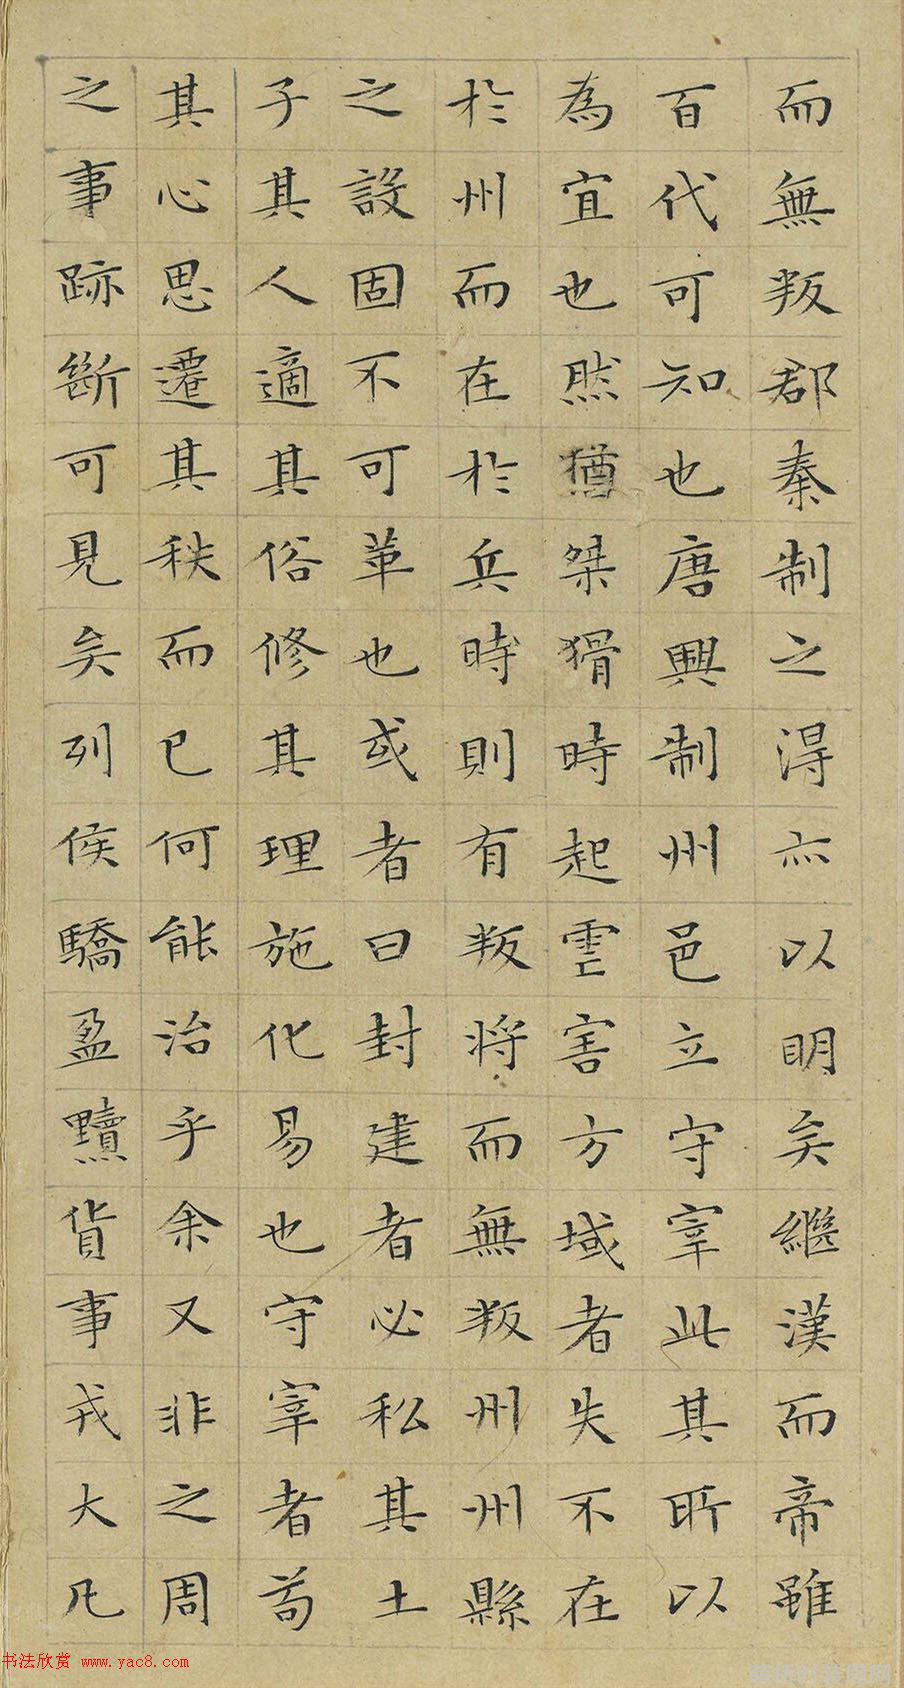 而無叛郡秦制之得亦以明矣繼漢而帝雖
百代可知也唐興制州邑立守宰此其所以
為宜也然猶桀猾時起虐害方域者失不在
於州而在於兵時則有叛將而無叛州州縣
之設固不可革也或者曰封建者必私其土
子其人適其俗修其理施化易也守宰者苟
其心思遷其秩而已何能治乎余又非之周
之事跡斷可見矣列侯驕盈黷貨事戎大凡
书法欣赏 www.yac8.com